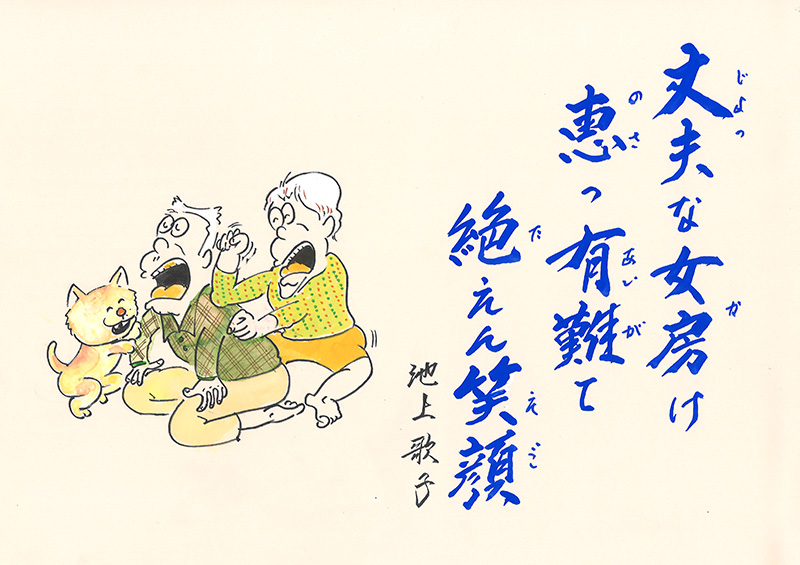 じょっ か
丈夫な女房け
のさ あいが
恵っ有難て
た
絶えん笑顔
池上歌子